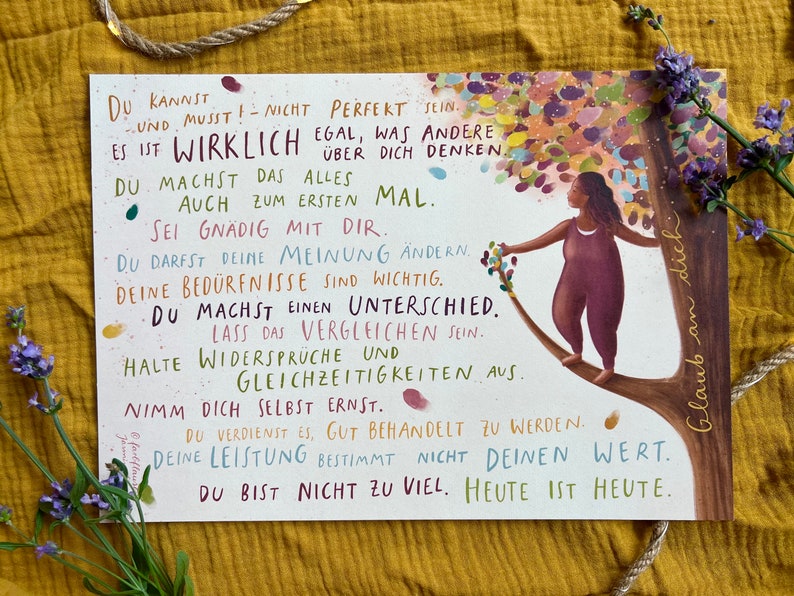 DU KANNST
UND MUSST! - NICHT PERFEKT SEIN.
ES IST WIRKLICH EGAL, WAS ANDERE
ÜBER DICH DENKEN
DU MACHST DAS ALLES
AUCH ZUM ERSTEN MAL.
SEI GNÄDIG MIT DIR.
DU DARFST DEINE MEINUNG ÄNDERN.
DEINE BEDÜRFNISSE SIND WICHTIG.
DU MACHST EINEN UNTERSCHIED.
LASS DAS VERGLEICHEN SEIN.
HALTE WIDERSPRÜCHE UND
GLEICHZEITIGKEITEN AUS.
NIMM DICH SELBST ERNST.
DU VERDIENST ES, GUT BEHANDELT ZU WERDEN.
DEINE LEISTUNG BESTIMMT NICHT DEINEN WERT.
DU BIST NICHT ZU VIEL. HEUTE IST HEUTE.
Glaub an dich